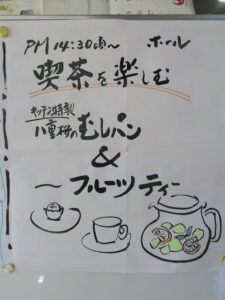 PM 14:30頃〜 ホール
喫茶を楽しむ
キッチン特製
八重桜のむしパン
&
〜フルーツティー